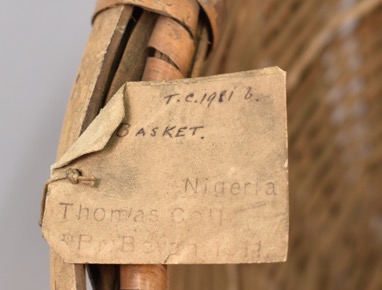 T.C.1981 b.
BASKET.
Nigeria
Thomas Coll